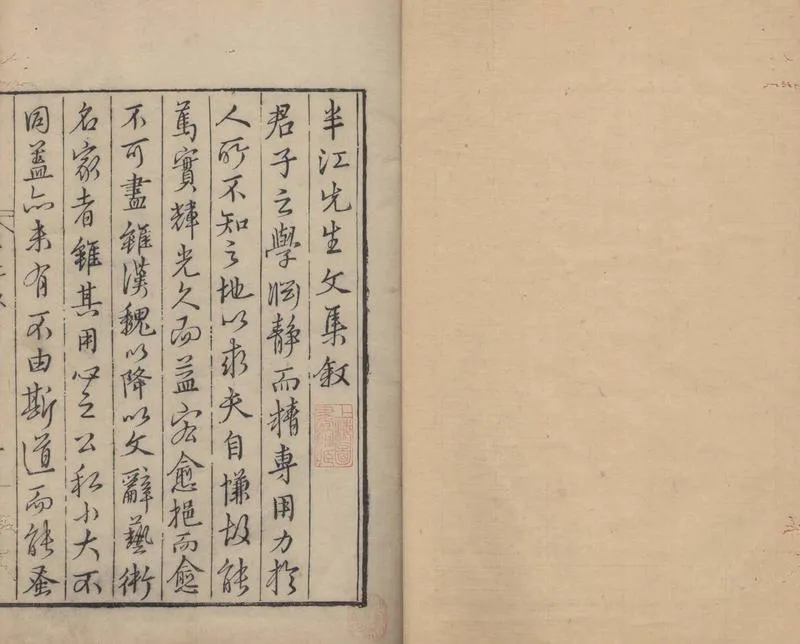 半江先生文集叙
君子之學淵靜而精專用力於
人所不知之地以求夫自慊故能
篤實輝光久而益宏愈挹而愈
不可盡雖漢魏以降以文辭藝術
名家者雖其用心之公私小大不
同蓋亦未有不由斯道而能蚤
上海圖書館藏